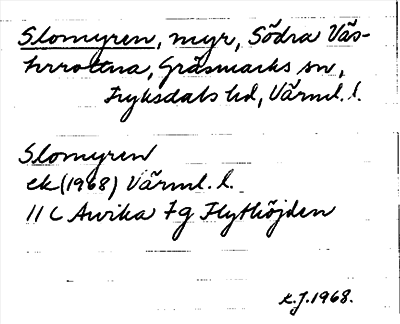 Slomyren, myr, Södra Väs-
korrottna, Gräsmarks sn,
Fryksdals hd, Värml. l.
Slomyren
ek (1968) Värml. l.
11 C Arvika 7g Flythöjden
E.J. 1968.